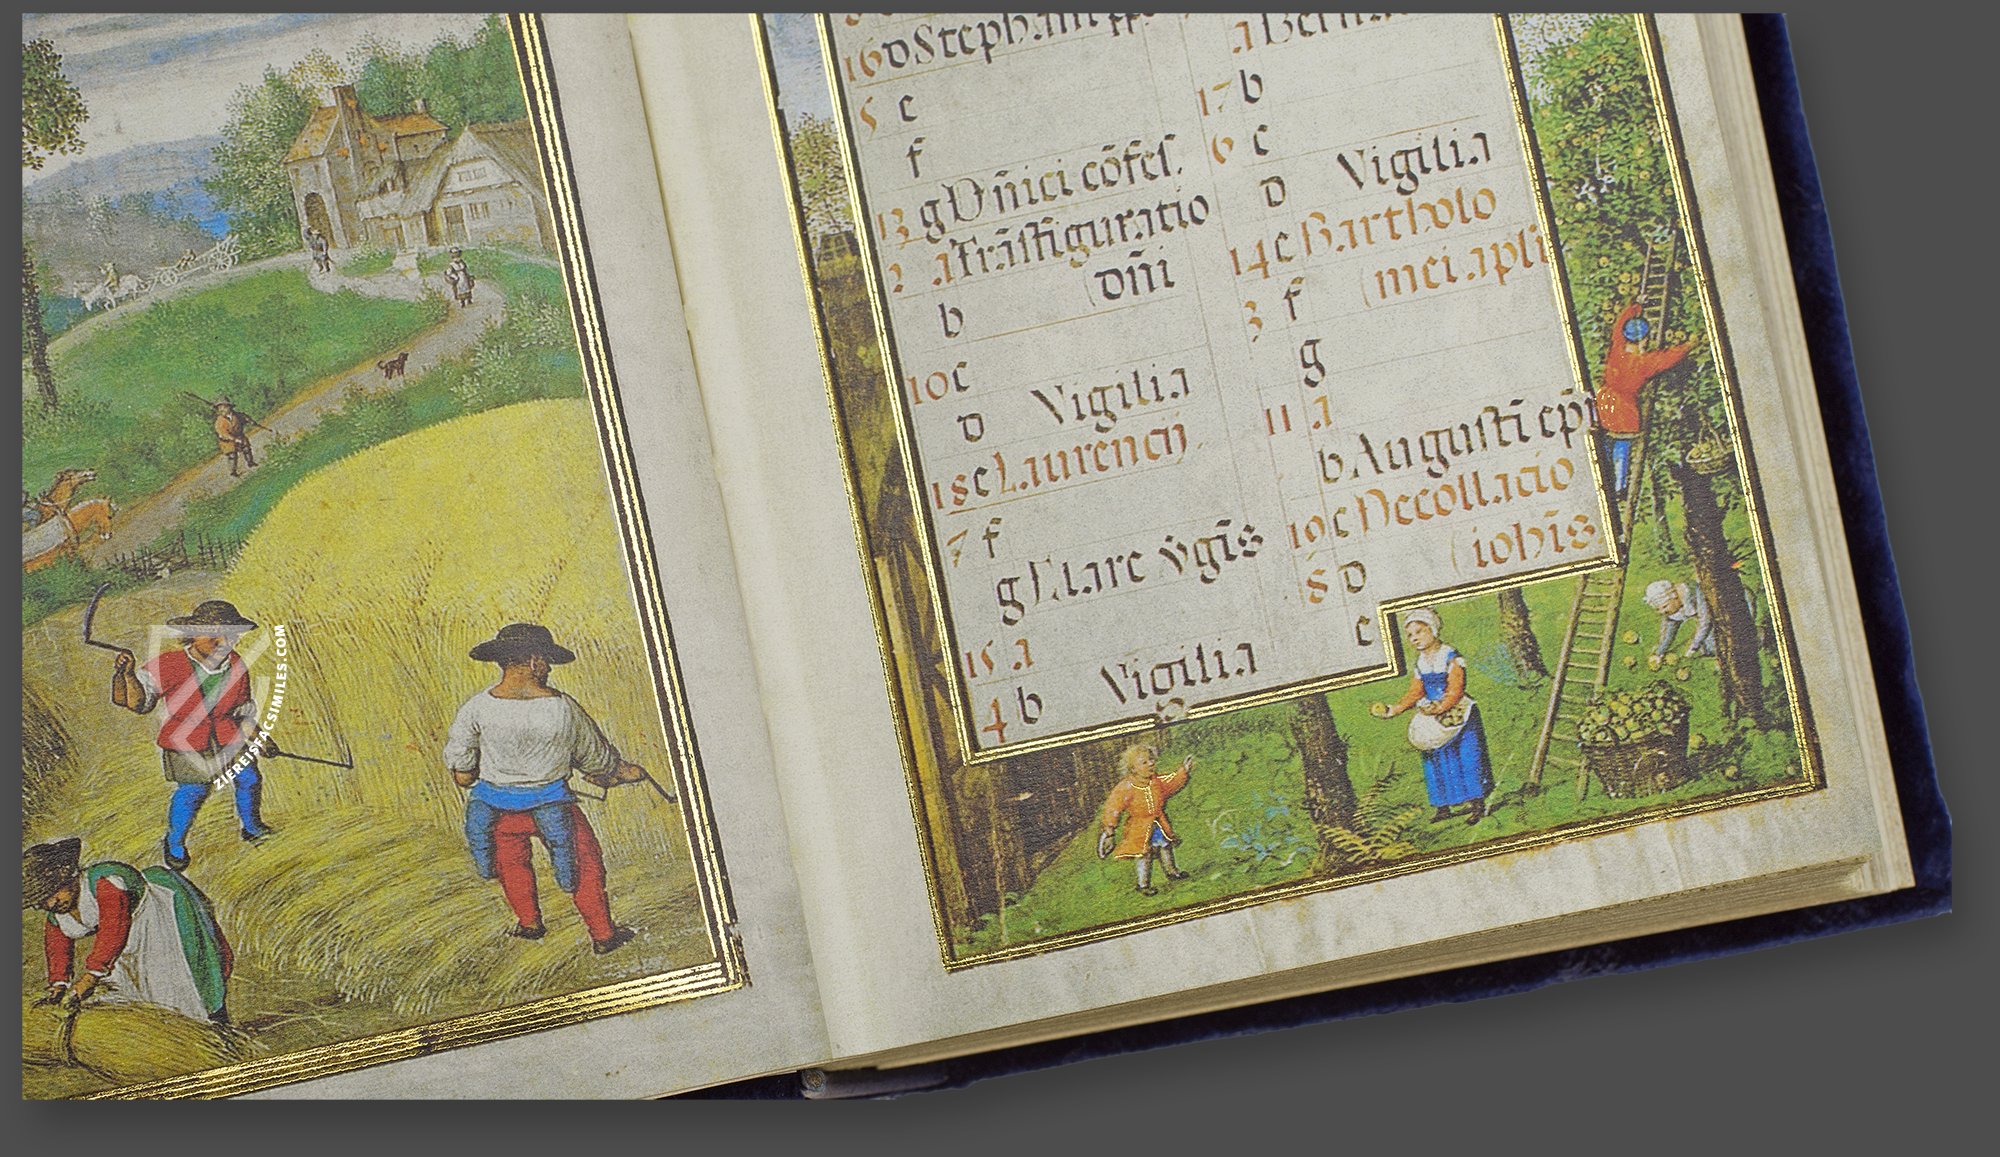 16 d Stephani pp
5 e
f
13 g Dñici cõfes.
2 a Trãsfiguratio
(dñi
b
10 c
d Vigilia
18 e Laurencij.
7 f
g Clare v̄gĩs
15 a
4 b Vigilia
a
17 b
6 c
d Vigilia
14 e Bartholo
3 f (mei apli
g
11 a
b Augustĩ ep̄i
19 c Decollacio
8 d (iohĩs
e
ZIEREISFACSIMILES.COM